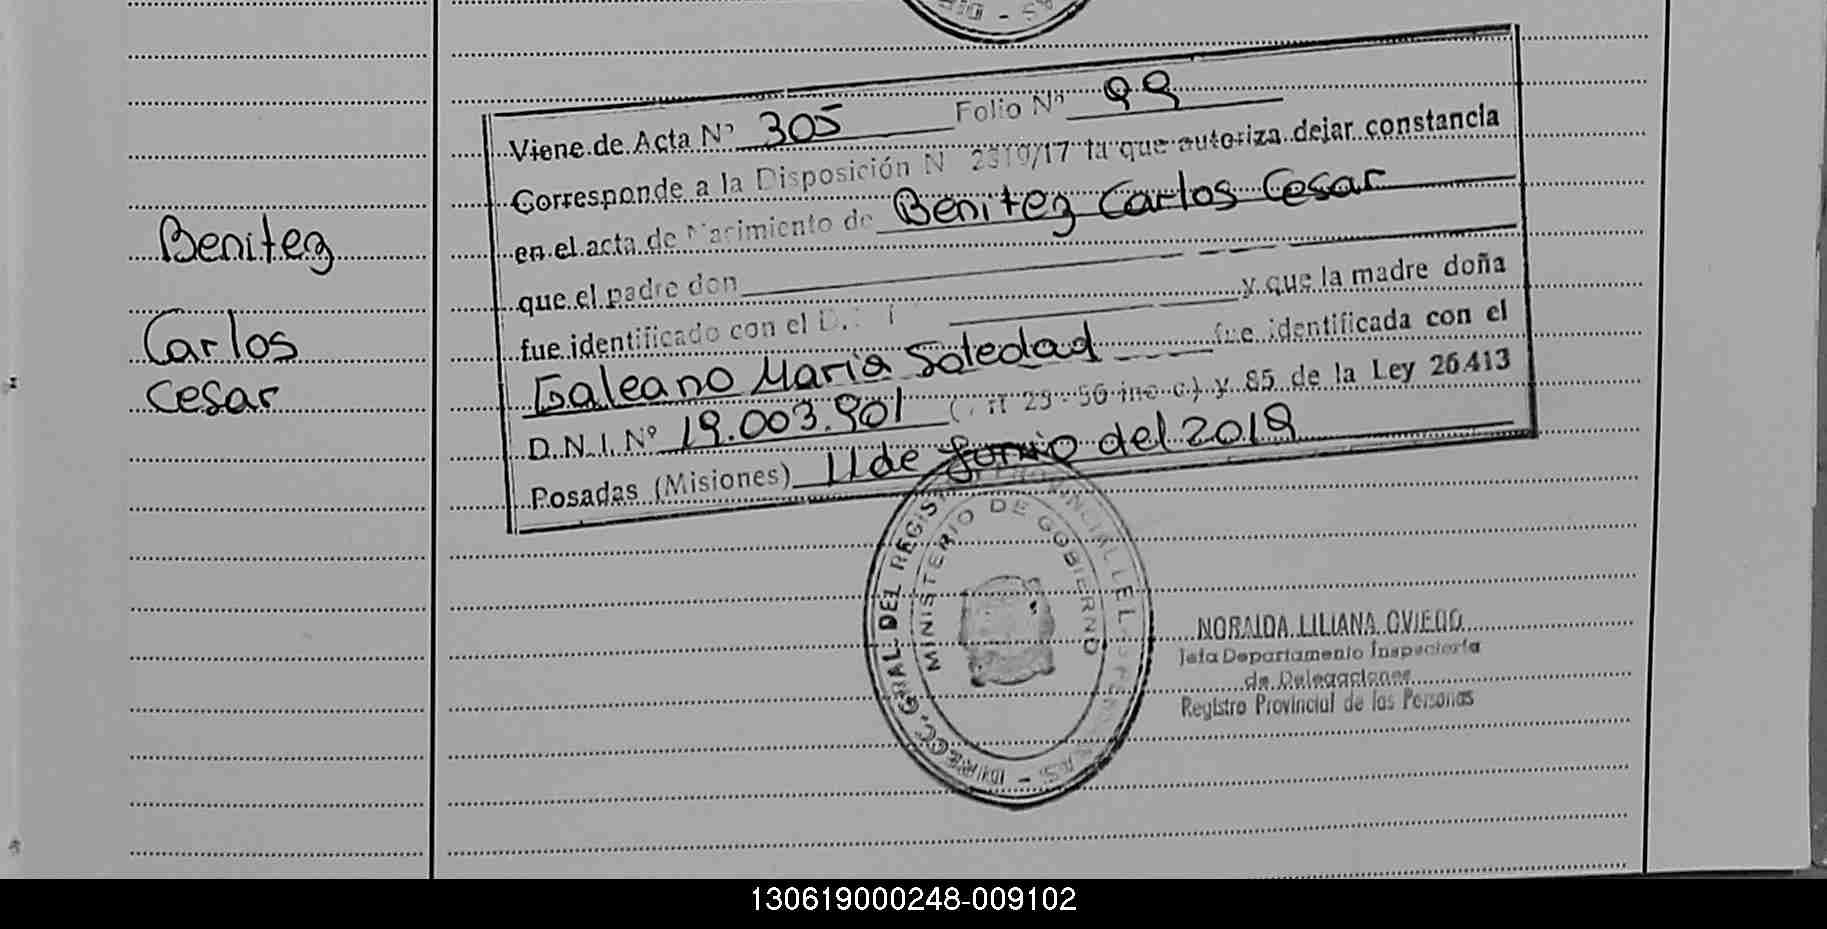 Viene de Acta Nº 305 Folio Nº 99
Corresponde a la Disposición N 2319/17 la que autoriza dejar constancia
en el acta de Nacimiento de Benitez Carlos Cesar
que el padre don
fue identificado con el D. I y que la madre doña
Galeano Maria Soledad fue identificada con el
D.N.I. Nº 19.003.901 ( rt 29 - 56 inc c) y 85 de la Ley 26.413
Posadas (Misiones) 11 de Junio del 2018
Benitez
Carlos
Cesar
DIRECC. GRAL. DEL REGIST PROVINCIAL DE L
MINISTERIO DE GOBIERNO
NORAIDA LILIANA OVIEDO
Jefa Departamento Inspectoría
de Delegaciones
Registro Provincial de las Personas
130619000248-009102